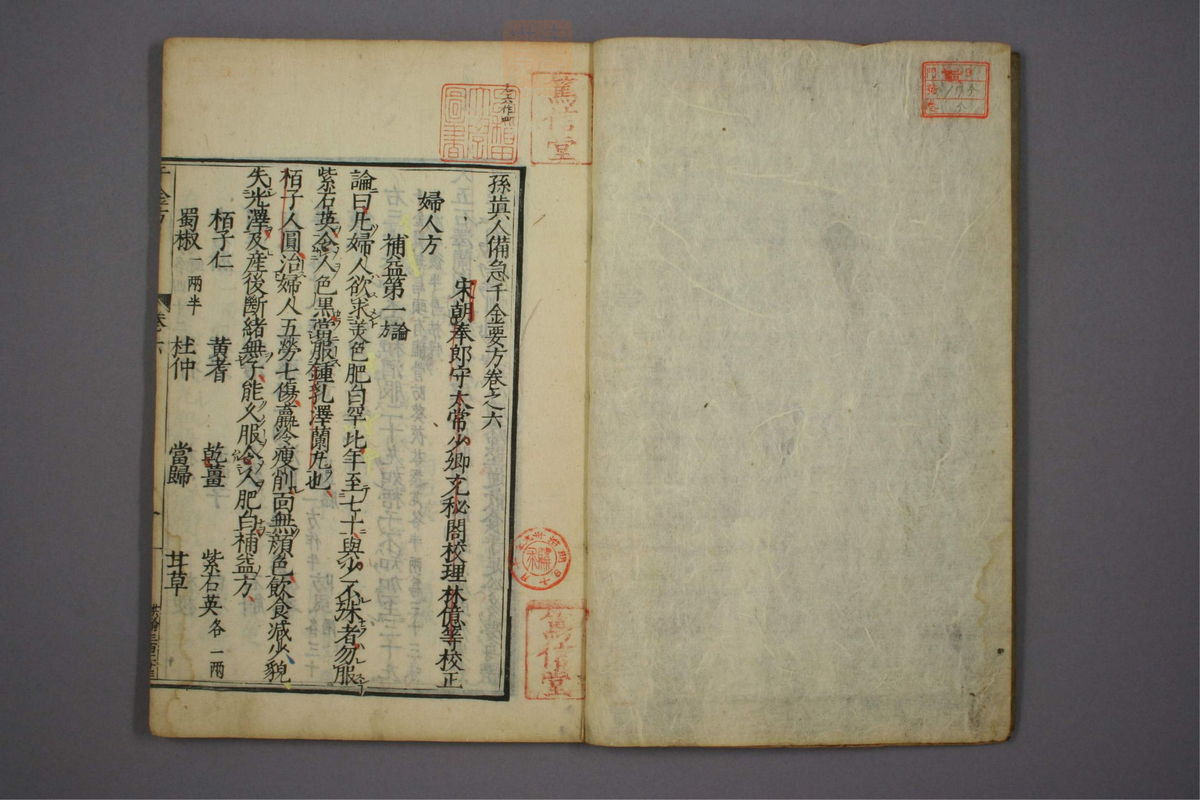 孫眞人備急千金要方卷之六
宋朝奉郎守太常少卿充秘閣校理林億等校正
婦人方
補益第一論方
論曰凡婦人欲求美色肥白罕比年至七十與少不殊者勿服
紫石英令人色黒當服鍾乳澤蘭丸也
栢子人圓治婦人五勞七傷羸冷瘦削面無顏色飲食減少貌
失光澤及産後斷緒無子能久服令人肥白補益方
栢子仁 黄耆 乾薑 紫石英各一兩
蜀椒一兩半 杜仲 當歸 甘草
千金方 卷六
篤信堂
篤信堂
圖書